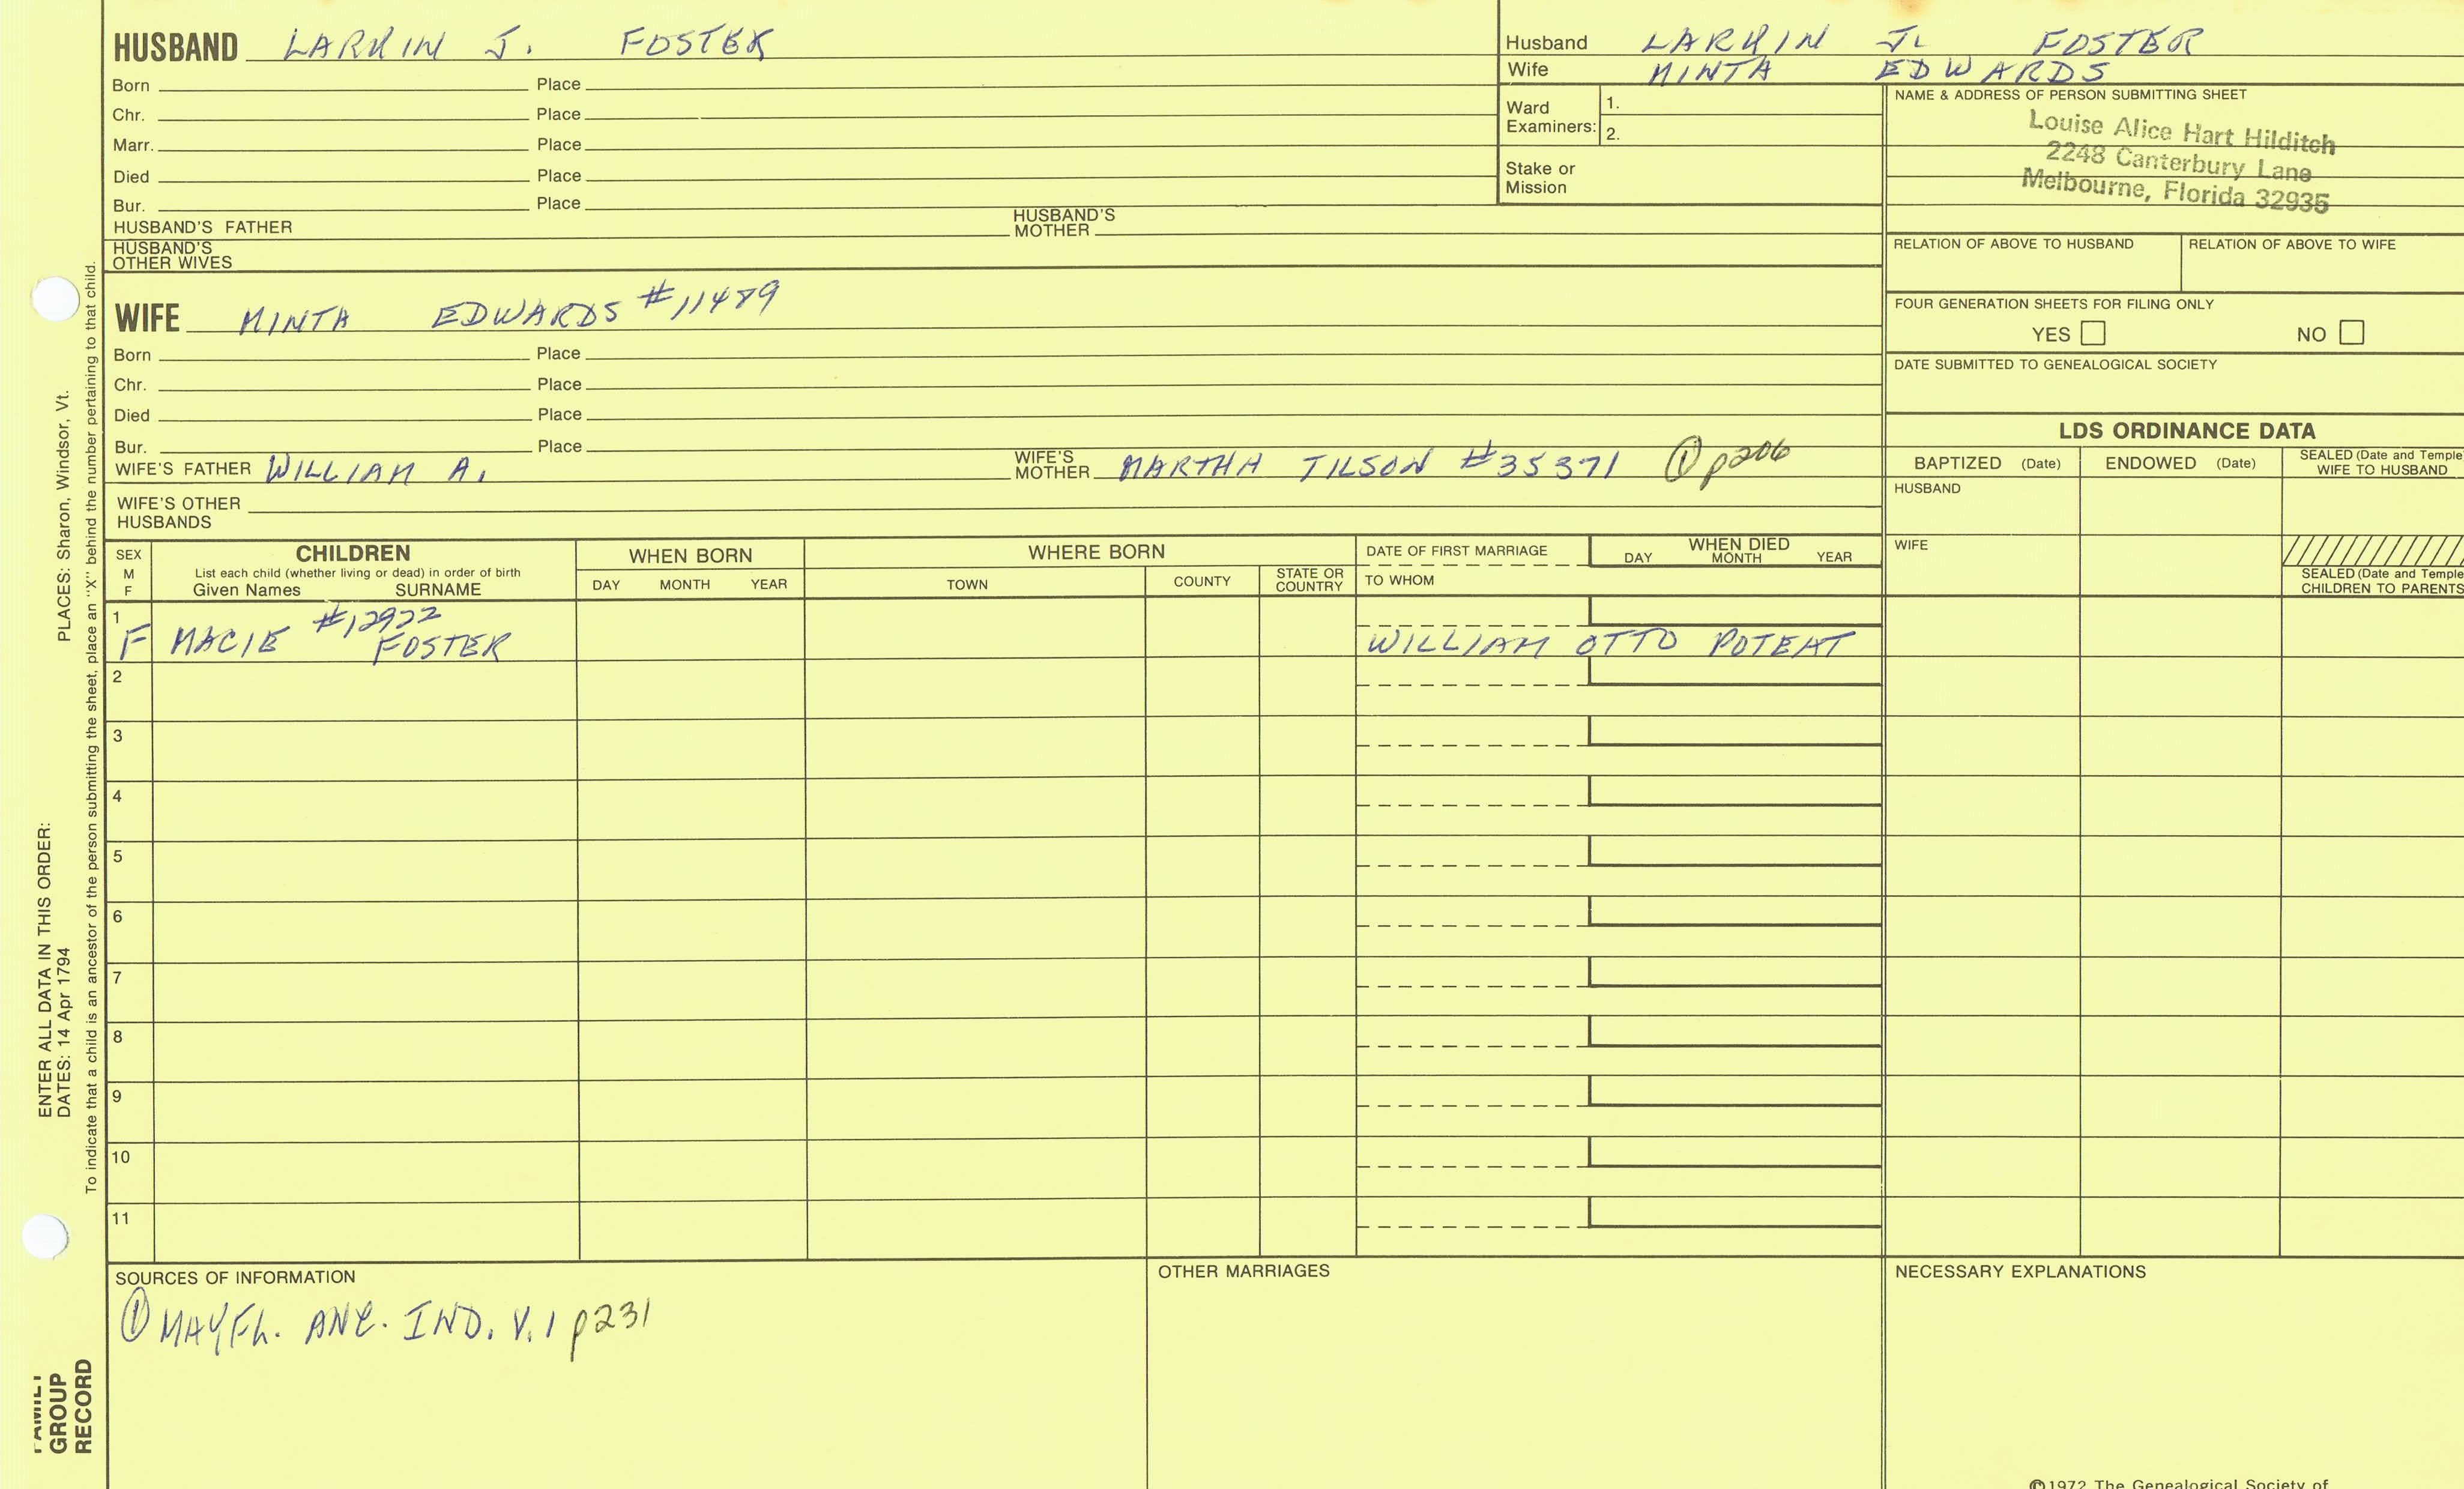 HUSBAND LARKIN J. FOSTER
Born Place
Chr. Place
Marr. Place
Died Place
Bur. Place
HUSBAND'S FATHER HUSBAND'S MOTHER
HUSBAND'S OTHER WIVES
Husband LARKIN J. FOSTER
Wife MINTA EDWARDS
Ward Examiners: 1.
2.
Stake or Mission
NAME & ADDRESS OF PERSON SUBMITTING SHEET
Louise Alice Hart Hilditch
2248 Canterbury Lane
Melbourne, Florida 32935
RELATION OF ABOVE TO HUSBAND RELATION OF ABOVE TO WIFE
FOUR GENERATION SHEETS FOR FILING ONLY
YES NO
DATE SUBMITTED TO GENEALOGICAL SOCIETY
WIFE MINTA EDWARDS #11489
Born Place
Chr. Place
Died Place
Bur. Place
WIFE'S FATHER WILLIAM A. WIFE'S MOTHER MARTHA TILSON #35371 ① p206
WIFE'S OTHER HUSBANDS
LDS ORDINANCE DATA
BAPTIZED (Date) ENDOWED (Date) SEALED (Date and Temple WIFE TO HUSBAND
HUSBAND
WIFE
SEALED (Date and Temple CHILDREN TO PARENTS
SEX M F
CHILDREN
List each child (whether living or dead) in order of birth
Given Names SURNAME
WHEN BORN
DAY MONTH YEAR
WHERE BORN
TOWN COUNTY STATE OR COUNTRY
DATE OF FIRST MARRIAGE
TO WHOM
WHEN DIED
DAY MONTH YEAR
1 F MACIE #12922 FOSTER WILLIAM OTTO POTEAT
2
3
4
5
6
7
8
9
10
11
SOURCES OF INFORMATION
① MAYFL. ANC. IND. V. 1 p231
OTHER MARRIAGES
NECESSARY EXPLANATIONS
©1972 The Genealogical Society of
PLACES: Sharon, Windsor, Vt.
ENTER ALL DATA IN THIS ORDER:
DATES: 14 Apr 1794
To indicate that a child is an ancestor of the person submitting the sheet, place an "X" behind the number pertaining to that child.
FAMILY
GROUP
RECORD